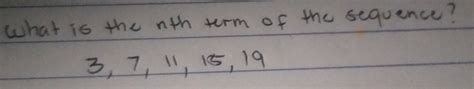 What is the nth term of the sequence?
3, 7, 11, 15, 19